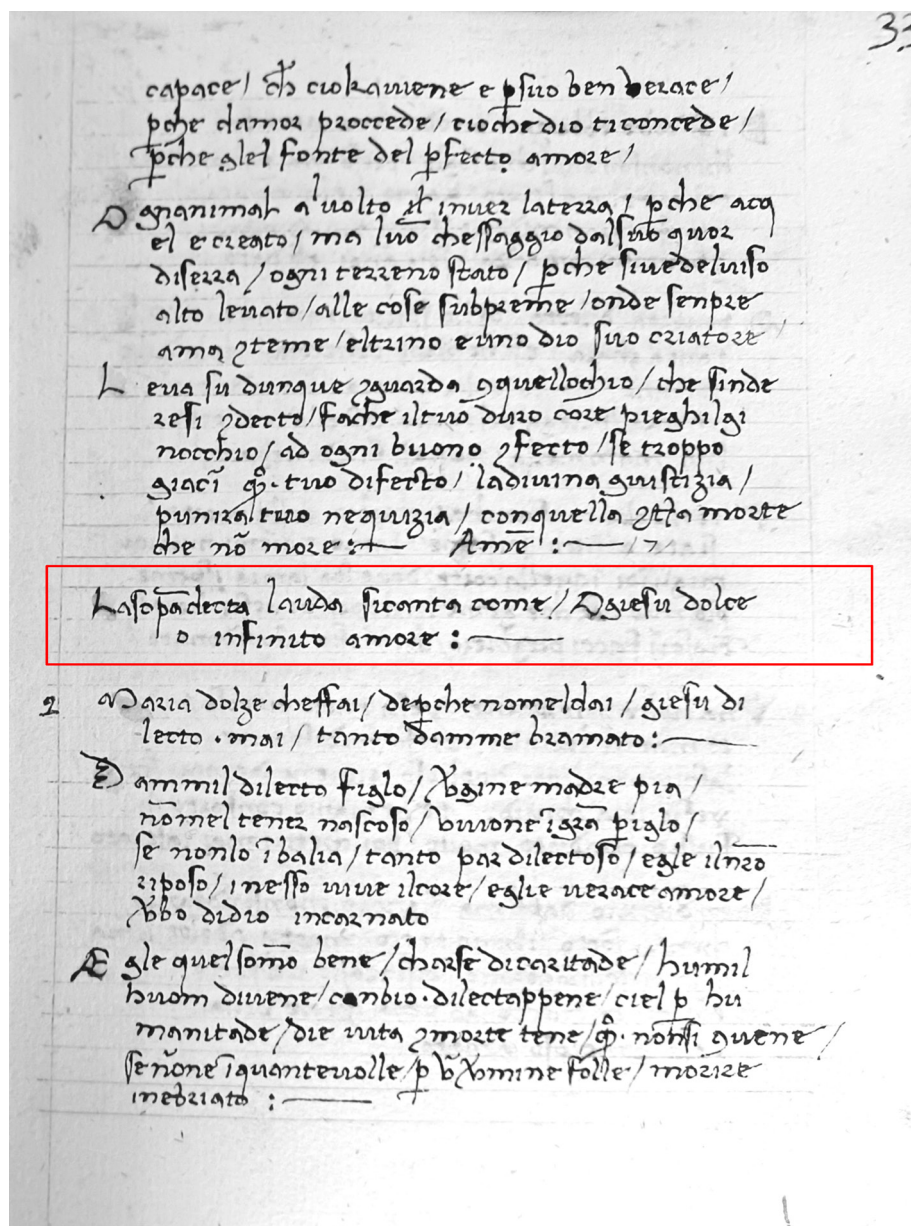 33
capace / ch̄ ciokavviene e ꝑsuo ben verace /
pche damor proccede / cioche dio ticoncede /
ꝑche glel fonte del ꝑfecto amore /
O gnanimal a'uolto il inuer laterra / ꝑche acq
el e creato / ma luō chessaggio dalsuo quor
diserra / ogni terreno stato / ꝑche siuedeluiso
alto leuato / alle cose subpreme / onde senpre
ama ⁊teme / eltrino e uno dio suo criatore
L eua su dunque ⁊guarda ꝯquellochio / che sinde
resi ⁊decto / fache iltuo duro core pieghilgi
nocchio / ad ogni buono ꝯfecto / se troppo
giaci ꝑ tuo difecto / ladiuina guistizia /
punira tuo nequizia / conquella morte
che nō more :— Amē :—
Lasop̄adecta lauda sicanta come / O giesu dolce
o infinito amore :—
2 Maria dolze cheffai / deꝑche nomeldai / giesu di
lecto · mai / tanto damme bramato :—
D ammil dilecto figlo / Vgine madre pia /
nōmel tener nascoso / vuuone ī grā piglo /
se nonlo ī balia / tanto par dilectoso / egle ilnr̄o
riposo / inesso uiue ilcore / eglie uerace amore /
Vbo didio incarnato
E gle quelsom̄o bene / charse dicaritade / humil
huom diuene / canbio · dilectappene / ciel ꝑ hu
manitade / die uita ⁊morte tene / nonsi ꝯuene /
se nōne ī quanteuolle / ꝑ folle / morire
inebriato :—